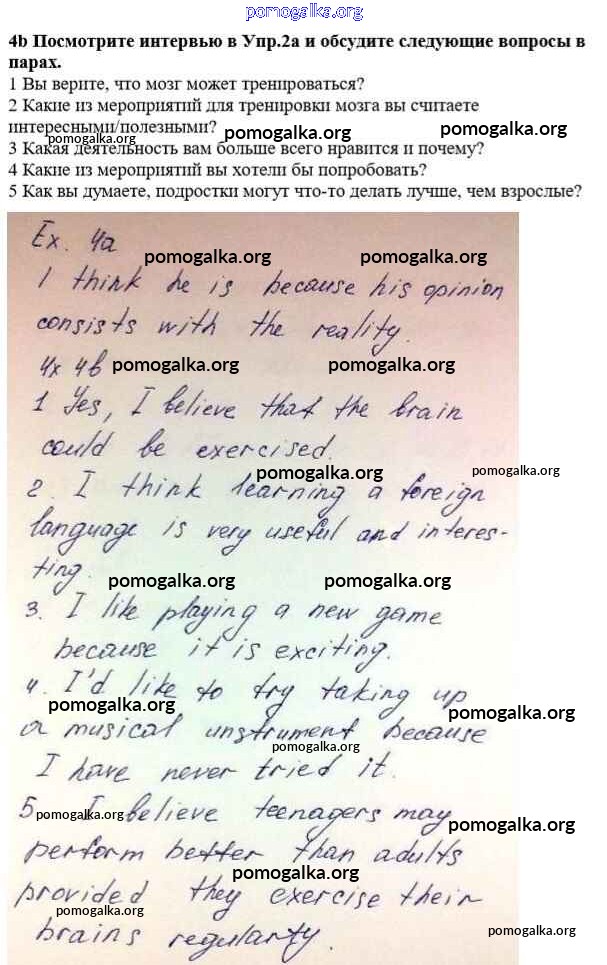 pomogalka.org
4b Посмотрите интервью в Упр.2а и обсудите следующие вопросы в
парах.
1 Вы верите, что мозг может тренироваться?
2 Какие из мероприятий для тренировки мозга вы считаете
интересными/полезными? pomogalka.org pomogalka.org
pomogalka.org
3 Какая деятельность вам больше всего нравится и почему?
4 Какие из мероприятий вы хотели бы попробовать?
5 Как вы думаете, подростки могут что-то делать лучше, чем взрослые?
Ex. 4a
pomogalka.org pomogalka.org
I think he is because his opinion
consists with the reality.
4x 4b pomogalka.org pomogalka.org
1 Yes, I believe that the brain
could be exercised.
pomogalka.org pomogalka.org
2. I think learning a foreign
language is very useful and interes-
ting.
pomogalka.org pomogalka.org
3. I like playing a new game
because it is exciting.
4. I'd like to try taking up
pomogalka.org pomogalka.org
a musical unstrument because
pomogalka.org
I have never tried it.
5 pomogalka.org I believe teenagers may
pomogalka.org
perform better than adults
pomogalka.org
provided they exercise their
pomogalka.org
brains regularty.
pomogalka.org